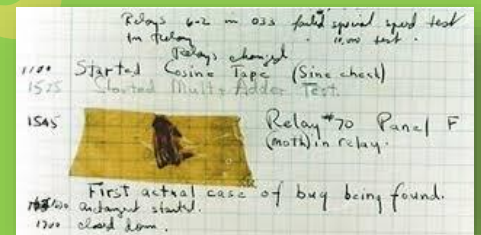 Relays 6-2 in 033 failed special speed test
in Relay 10,000 test.
Relays changed
1100 Started Cosine Tape (Sine check)
1525 Started Mult + Adder Test.
1545 Relay #70 Panel F
(moth) in relay.
First actual case of bug being found.
antangent started.
1700 closed down.